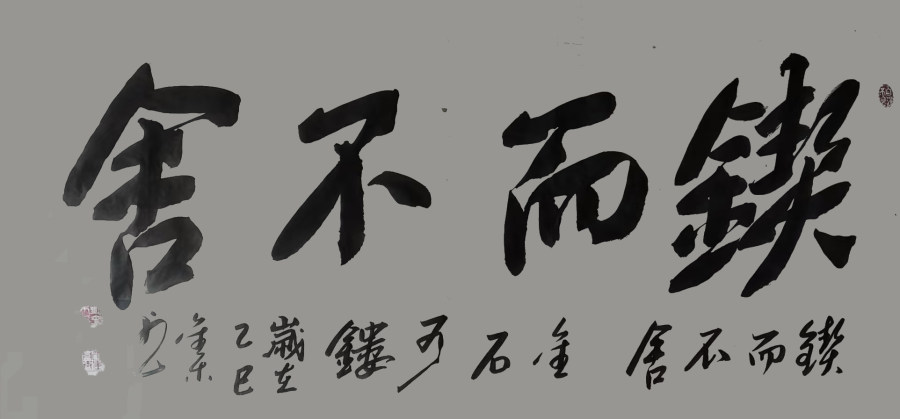 锲而不舍
锲而不舍
金石可鏤
歲在
乙巳